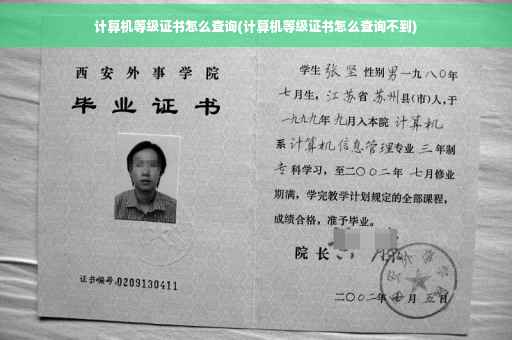 计算机等级证书怎么查询(计算机等级证书怎么查询不到)
西安外事学院
毕业证书
证书编号:0209130411
学生张坚性别男一九八〇年
七月生,江苏省苏州县(市)人,于
一九九九年九月入本院计算机
系计算机信息管理专业三年制
专科学习,至二〇〇二年七月修业
期满,学完教学计划规定的全部课程,
成绩合格,准予毕业。
院长
二〇〇二年 月五日